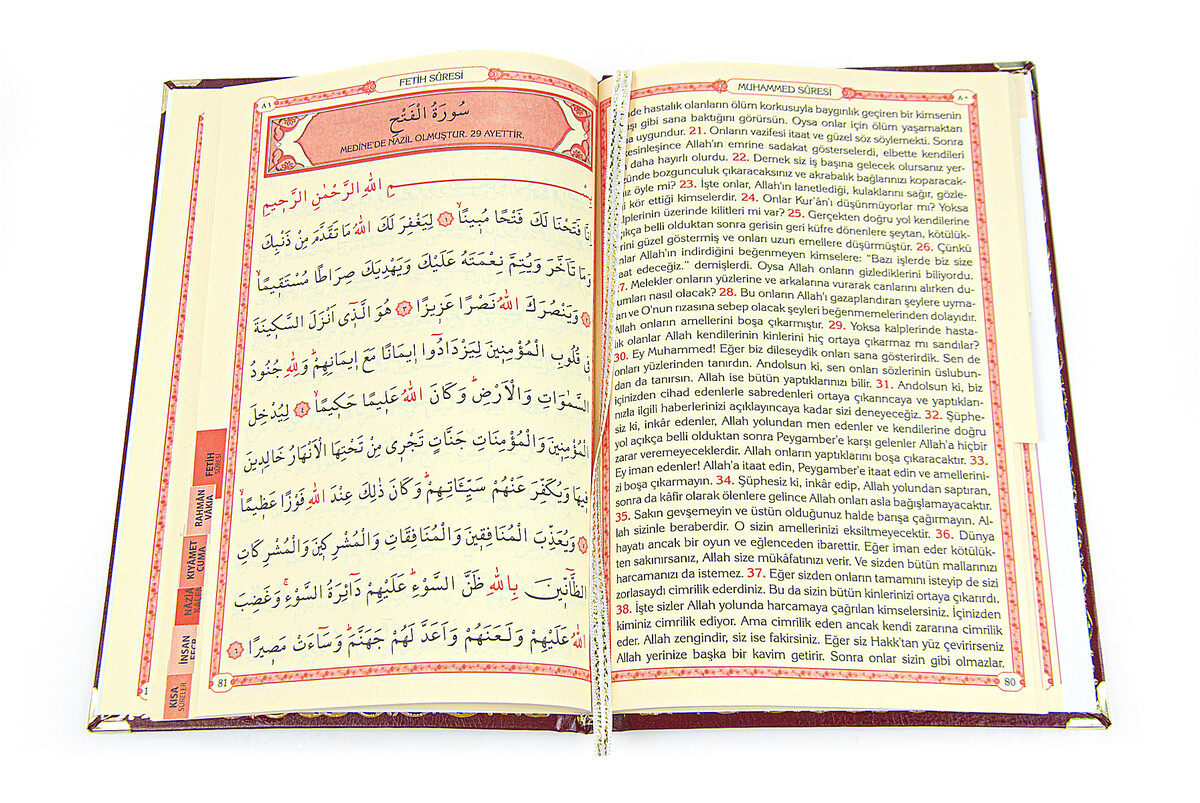 MUHAMMED SÛRESİ
٨٠
de hastalık olanların ölüm korkusuyla baygınlık geçiren bir kimsenin
şı gibi sana baktığını görürsün. Oysa onlar için ölüm yaşamaktan
a uygundur. 21. Onların vazifesi itaat ve güzel söz söylemekti. Sonra
kesinleşince Allah'ın emrine sadakat gösterselerdi, elbette kendileri
daha hayırlı olurdu. 22. Demek siz iş başına gelecek olursanız yer-
ünde bozgunculuk çıkaracaksınız ve akrabalık bağlarınızı koparacak-
ız öyle mi? 23. İşte onlar, Allah'ın lanetlediği, kulaklarını sağır, gözle-
i kör ettiği kimselerdir. 24. Onlar Kur'ân'ı düşünmüyorlar mı? Yoksa
kalplerinin üzerinde kilitleri mi var? 25. Gerçekten doğru yol kendilerine
çıkça belli olduktan sonra gerisin geri küfre dönenlere şeytan, kötülük-
rini güzel göstermiş ve onları uzun emellere düşürmüştür. 26. Çünkü
onlar Allah'ın indirdiğini beğenmeyen kimselere: "Bazı işlerde biz size
aat edeceğiz." demişlerdi. Oysa Allah onların gizlediklerini biliyordu.
27. Melekler onların yüzlerine ve arkalarına vurarak canlarını alırken du-
rumları nasıl olacak? 28. Bu onların Allah'ı gazaplandıran şeylere uyma-
arı ve O'nun rızasına sebep olacak şeyleri beğenmemelerinden dolayıdır.
Allah onların amellerini boşa çıkarmıştır. 29. Yoksa kalplerinde hasta-
lık olanlar Allah kendilerinin kinlerini hiç ortaya çıkarmaz mı sandılar?
30. Ey Muhammed! Eğer biz dileseydik onları sana gösterirdik. Sen de
onları yüzlerinden tanırdın. Andolsun ki, sen onları sözlerinin üslubun-
dan da tanırsın. Allah ise bütün yaptıklarınızı bilir. 31. Andolsun ki, biz
içinizden cihad edenlerle sabredenleri ortaya çıkarıncaya ve yaptıkları-
nızla ilgili haberlerinizi açıklayıncaya kadar sizi deneyeceğiz. 32. Şüphe-
siz ki, inkâr edenler, Allah yolundan men edenler ve kendilerine doğru
yol açıkça belli olduktan sonra Peygamber'e karşı gelenler Allah'a hiçbir
zarar veremeyeceklerdir. Allah onların yaptıklarını boşa çıkaracaktır. 33.
Ey iman edenler! Allah'a itaat edin, Peygamber'e itaat edin ve amellerini-
zi boşa çıkarmayın. 34. Şüphesiz ki, inkâr edip, Allah yolundan saptıran,
sonra da kâfir olarak ölenlere gelince Allah onları asla bağışlamayacaktır.
35. Sakın gevşemeyin ve üstün olduğunuz halde barışa çağırmayın. Al-
lah sizinle beraberdir. O sizin amellerinizi eksiltmeyecektir. 36. Dünya
hayatı ancak bir oyun ve eğlenceden ibarettir. Eğer iman eder kötülük-
ten sakınırsanız, Allah size mükâfatınızı verir. Ve sizden bütün mallarınızı
harcamanızı da istemez. 37. Eğer sizden onların tamamını isteyip de sizi
zorlasaydı cimrilik ederdiniz. Bu da sizin bütün kinlerinizi ortaya çıkarırdı.
38. İşte sizler Allah yolunda harcamaya çağrılan kimselersiniz. İçinizden
kiminiz cimrilik ediyor. Ama cimrilik eden ancak kendi zararına cimrilik
eder. Allah zengindir, siz ise fakirsiniz. Eğer siz Hakk'tan yüz çevirirseniz
Allah yerinize başka bir kavim getirir. Sonra onlar sizin gibi olmazlar.
80
FETİH SÛRESİ
٨١
سُورَةُ الْفَتْحِ
MEDİNE'DE NAZİL OLMUŞTUR. 29 AYETTİR.
بِسْمِ اللّٰهِ الرَّحْمٰنِ الرَّح۪يمِ
اِنَّا فَتَحْنَا لَكَ فَتْحًا مُب۪ينًاۙ ﴿١﴾ لِيَغْفِرَ لَكَ اللّٰهُ مَا تَقَدَّمَ مِنْ ذَنْبِكَ
وَمَا تَاَخَّرَ وَيُتِمَّ نِعْمَتَهُ عَلَيْكَ وَيَهْدِيَكَ صِرَاطًا مُسْتَق۪يمًاۙ
﴿٢﴾ وَيَنْصُرَكَ اللّٰهُ نَصْرًا عَز۪يزًا ﴿٣﴾ هُوَ الَّذ۪ٓي اَنْزَلَ السَّك۪ينَةَ
ف۪ي قُلُوبِ الْمُؤْمِن۪ينَ لِيَزْدَادُٓوا ا۪يمَانًا مَعَ ا۪يمَانِهِمْۜ وَلِلّٰهِ جُنُودُ
السَّمٰوَاتِ وَالْاَرْضِۜ وَكَانَ اللّٰهُ عَل۪يمًا حَك۪يمًاۙ ﴿٤﴾ لِيُدْخِلَ
الْمُؤْمِن۪ينَ وَالْمُؤْمِنَاتِ جَنَّاتٍ تَجْر۪ي مِنْ تَحْتِهَا الْاَنْهَارُ خَالِد۪ينَ
ف۪يهَا وَيُكَفِّرَ عَنْهُمْ سَيِّـَٔاتِهِمْۜ وَكَانَ ذٰلِكَ عِنْدَ اللّٰهِ فَوْزًا عَظ۪يمًاۙ
﴿٥﴾ وَيُعَذِّبَ الْمُنَافِق۪ينَ وَالْمُنَافِقَاتِ وَالْمُشْرِك۪ينَ وَالْمُشْرِكَاتِ
الظَّٓانّ۪ينَ بِاللّٰهِ ظَنَّ السَّوْءِۜ عَلَيْهِمْ دَٓائِرَةُ السَّوْءِۚ وَغَضِبَ
اللّٰهُ عَلَيْهِمْ وَلَعَنَهُمْ وَاَعَدَّ لَهُمْ جَهَنَّمَۜ وَسَٓاءَتْ مَص۪يرًا ﴿٦﴾
81
FETİH
SÛRESİ
RAHMÂN
VÂKIA
KIYÂMET
CUMA
NAZİA
İNSAN
KISA
SÛRELER
1